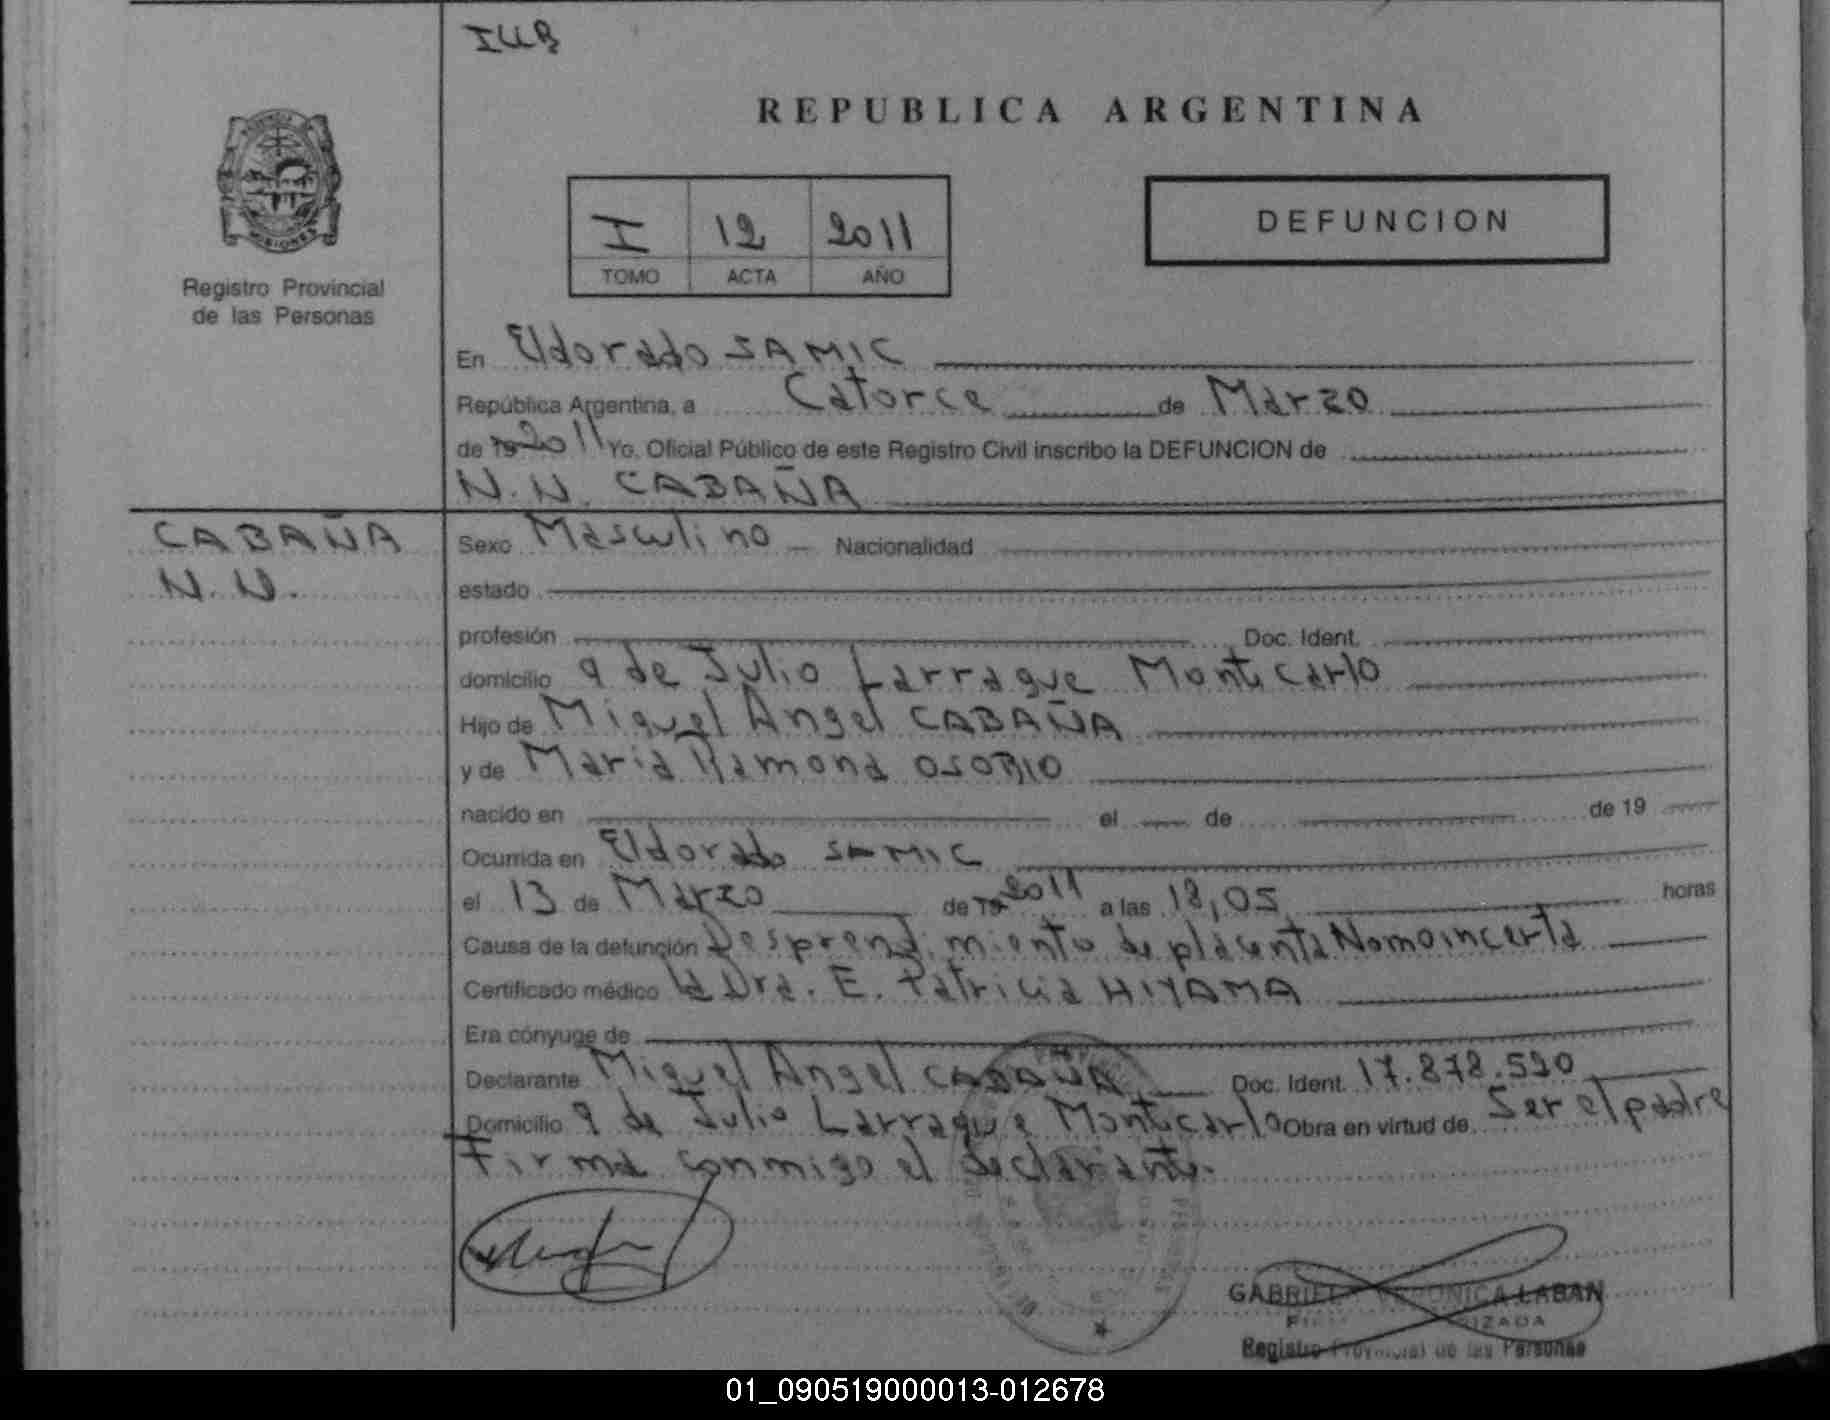 IUB
REPUBLICA ARGENTINA
MISIONES
Registro Provincial
de las Personas
I 12 2011
TOMO ACTA AÑO
DEFUNCION
En Eldorado SAMIC
República Argentina, a Catorce de Marzo
de 19 2011 Yo, Oficial Público de este Registro Civil inscribo la DEFUNCION de
N.N. CABAÑA
CABAÑA
N.N.
Sexo Masculino Nacionalidad
estado
profesión Doc. Ident.
domicilio 9 de Julio Larrague Montecarlo
Hijo de Miguel Angel CABAÑA
y de Maria Ramona OSORIO
nacido en el de de 19
Ocurrida en Eldorado SAMIC
el 13 de Marzo de 19 2011 a las 18,05 horas
Causa de la defunción Desprendimiento de placenta Nomoincerta
Certificado médico la Dra. E. Patricia HIYAMA
Era cónyuge de
Declarante Miguel Angel CABAÑA Doc. Ident. 17.878.520
Domicilio 9 de Julio Larrague Montecarlo Obra en virtud de Ser el padre
Firma conmigo el declarante.
GABRIEL VERONICA LABAN
Registro Provincial de las Personas
01_090519000013-012678